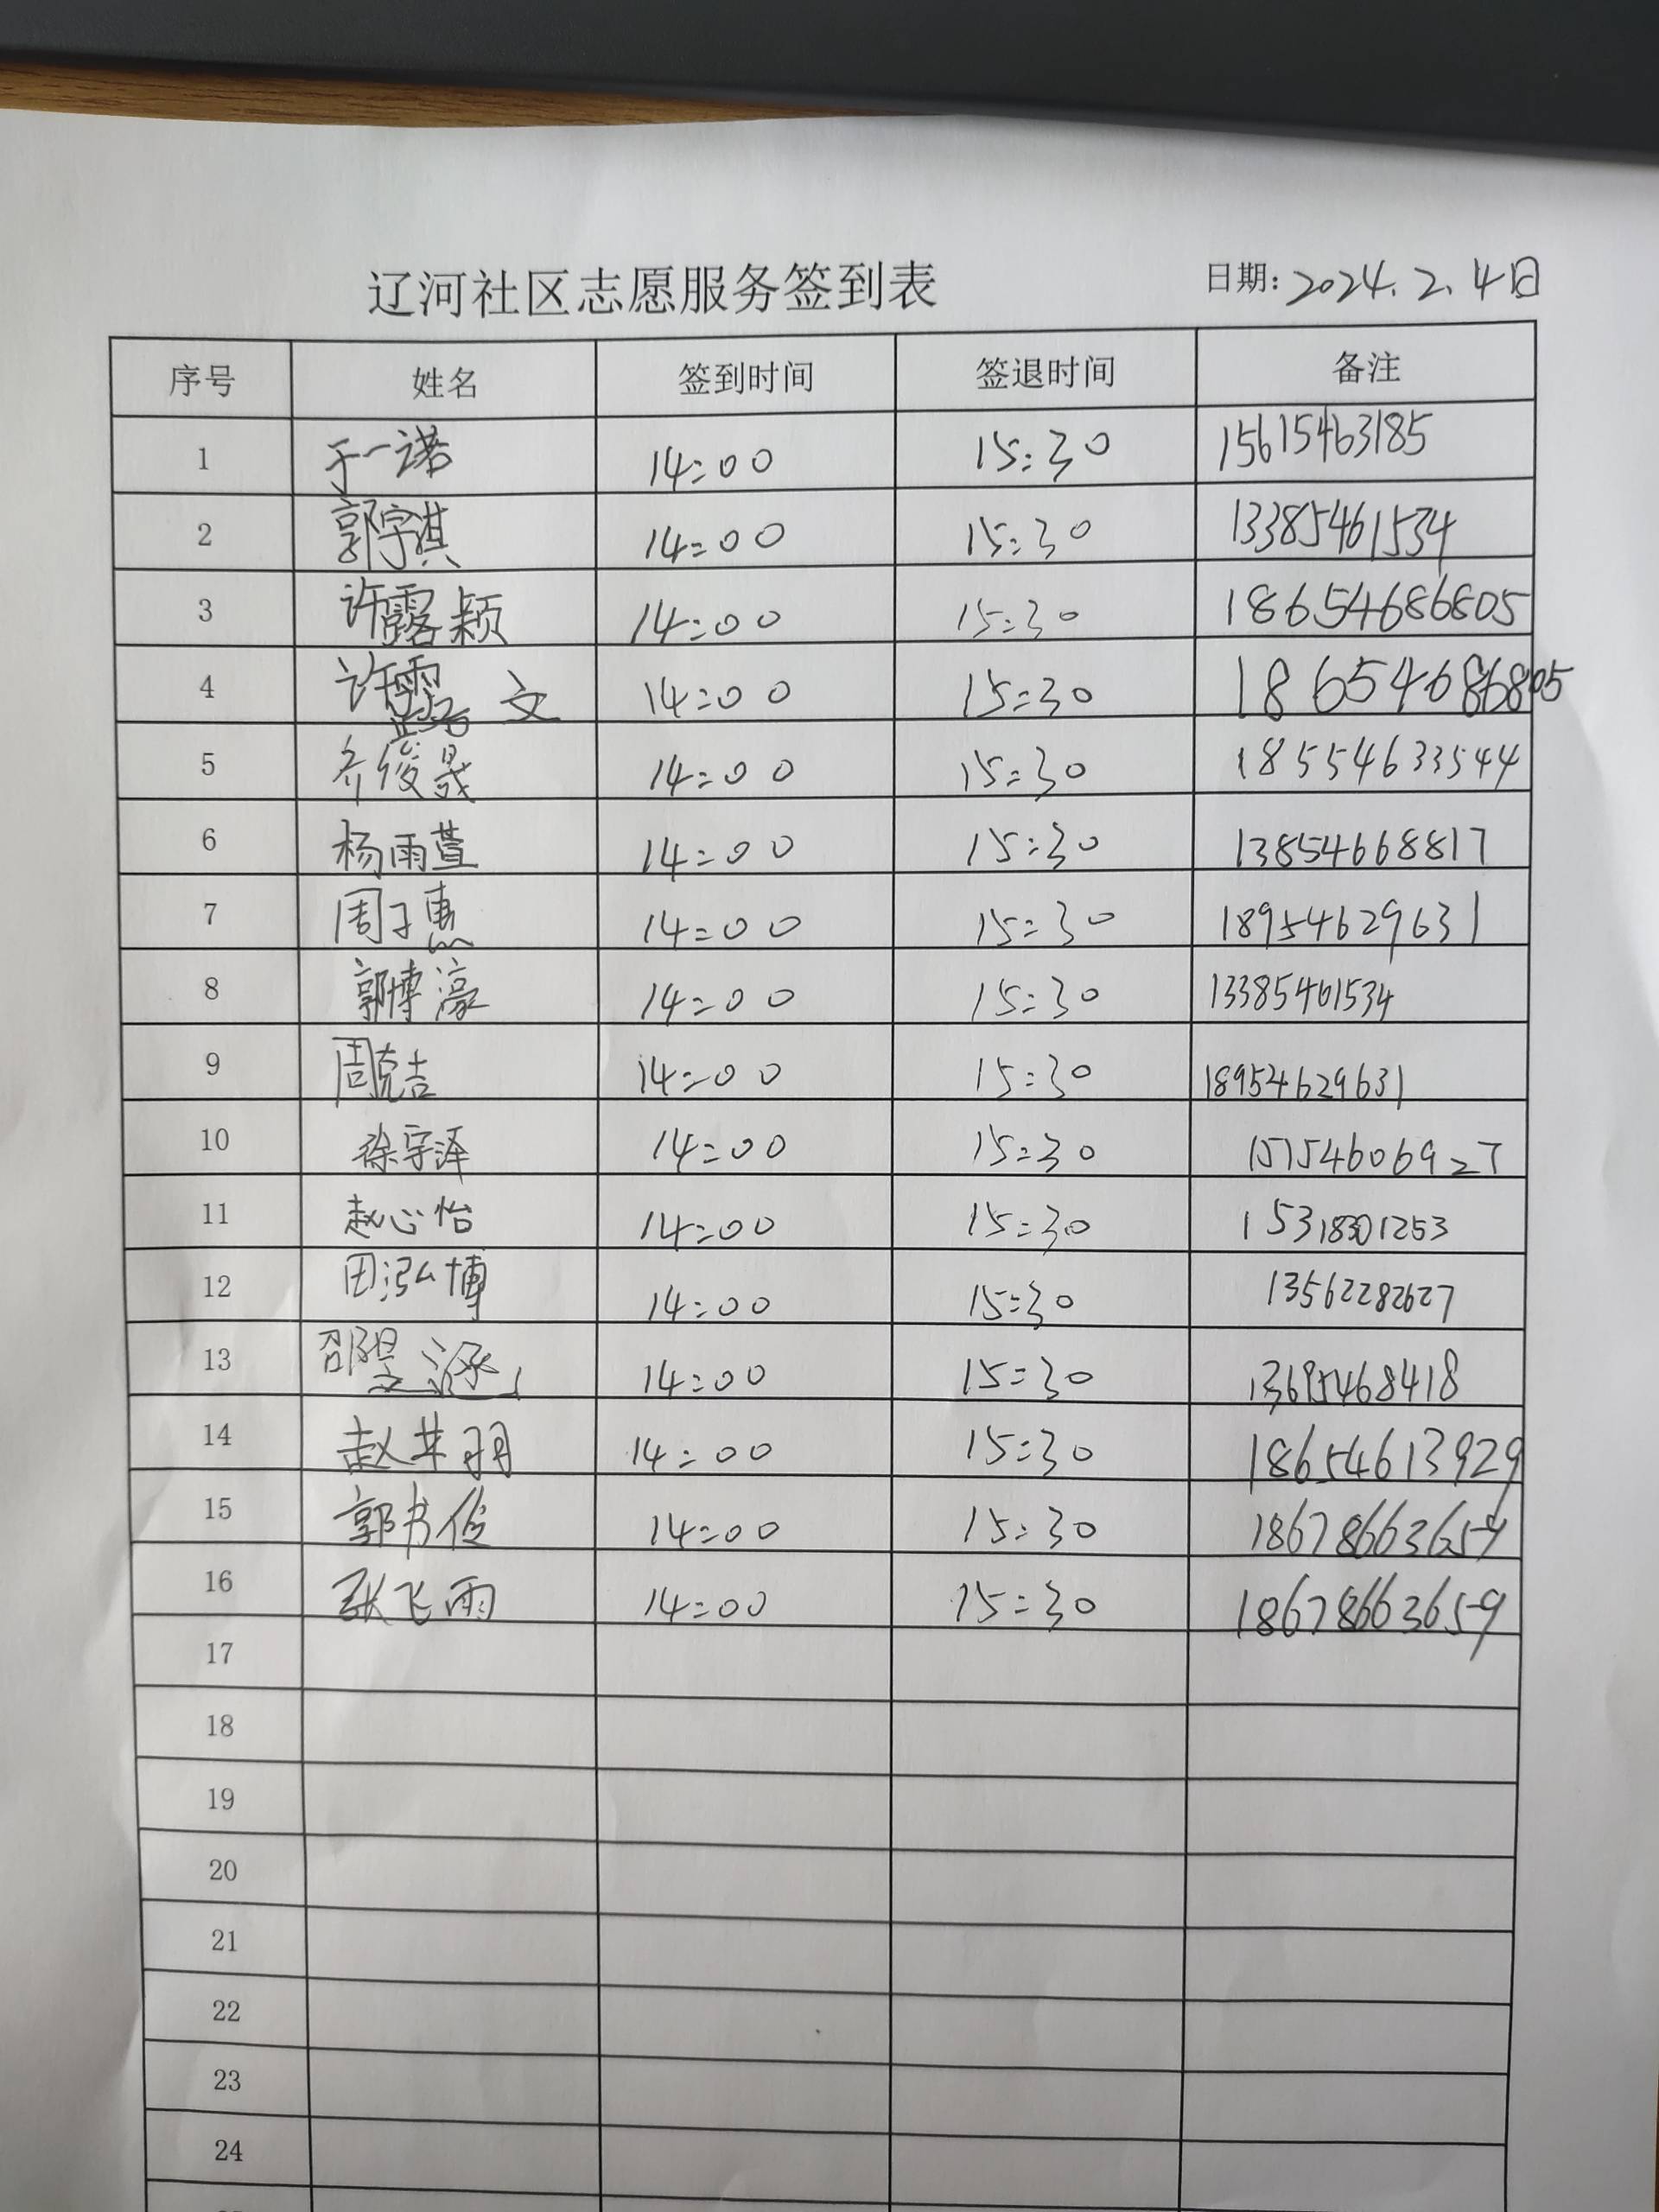 辽河社区志愿服务签到表 日期: 2024.2.4日
序号 姓名 签到时间 签退时间 备注
1 于一诺 14:00 15:30 15615463185
2 郭宇淇 14:00 15:30 13385461534
3 许露颖 14:00 15:30 18654686805
4 许露文 14:00 15:30 18654686805
5 乔俊晟 14:00 15:30 18554633544
6 杨雨萱 14:00 15:30 13854668817
7 周子惠 14:00 15:30 18954629631
8 郭博濠 14:00 15:30 13385461534
9 周克吉 14:00 15:30 18954629631
10 徐宇泽 14:00 15:30 15754606927
11 赵心怡 14:00 15:30 15318301253
12 田泓博 14:00 15:30 13562282627
13 邵 14:00 15:30
14 赵 羽 14:00 15:30 18654613929
15 郭书俊 14:00 15:30 18678663659
16 张飞雨 14:00 15:30 18678663659
17
18
19
20
21
22
23
24